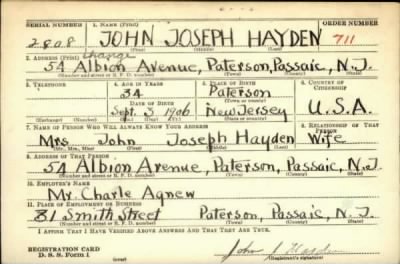 SERIAL NUMBER 1. NAME (Print) ORDER NUMBER
2808 JOHN JOSEPH HAYDEN 711
(First) (Middle) (Last)
2. ADDRESS (Print) change
54 Albion Avenue, Paterson, Passaic, N.J.
(Number and street or R. F. D. number) (Town) (County) (State)
3. TELEPHONE 4. AGE IN YEARS 5. PLACE OF BIRTH 6. COUNTRY OF CITIZENSHIP
34 Paterson
DATE OF BIRTH (Town or county)
Sept. 3 1906 New Jersey U.S.A.
(Exchange) (Number) (Mo.) (Day) (Yr.) (State or country)
7. NAME OF PERSON WHO WILL ALWAYS KNOW YOUR ADDRESS
Mrs John Joseph Hayden Wife
(Mr., Mrs., Miss) (First) (Middle) (Last)
8. ADDRESS OF THAT PERSON
54 Albion Avenue, Paterson, Passaic, N.J.
(Number and street or R. F. D. number) (Town) (County) (State)
9. EMPLOYER'S NAME
Mr. Charle Agnew
10. PLACE OF EMPLOYMENT OR BUSINESS
81 Smith Street Paterson, Passaic, N.J.
(Number and street or R. F. D. number) (Town) (County) (State)
I AFFIRM THAT I HAVE VERIFIED ABOVE ANSWERS AND THAT THEY ARE TRUE.
REGISTRATION CARD
D. S. S. Form 1 John J Hayden
(Registrant's signature)